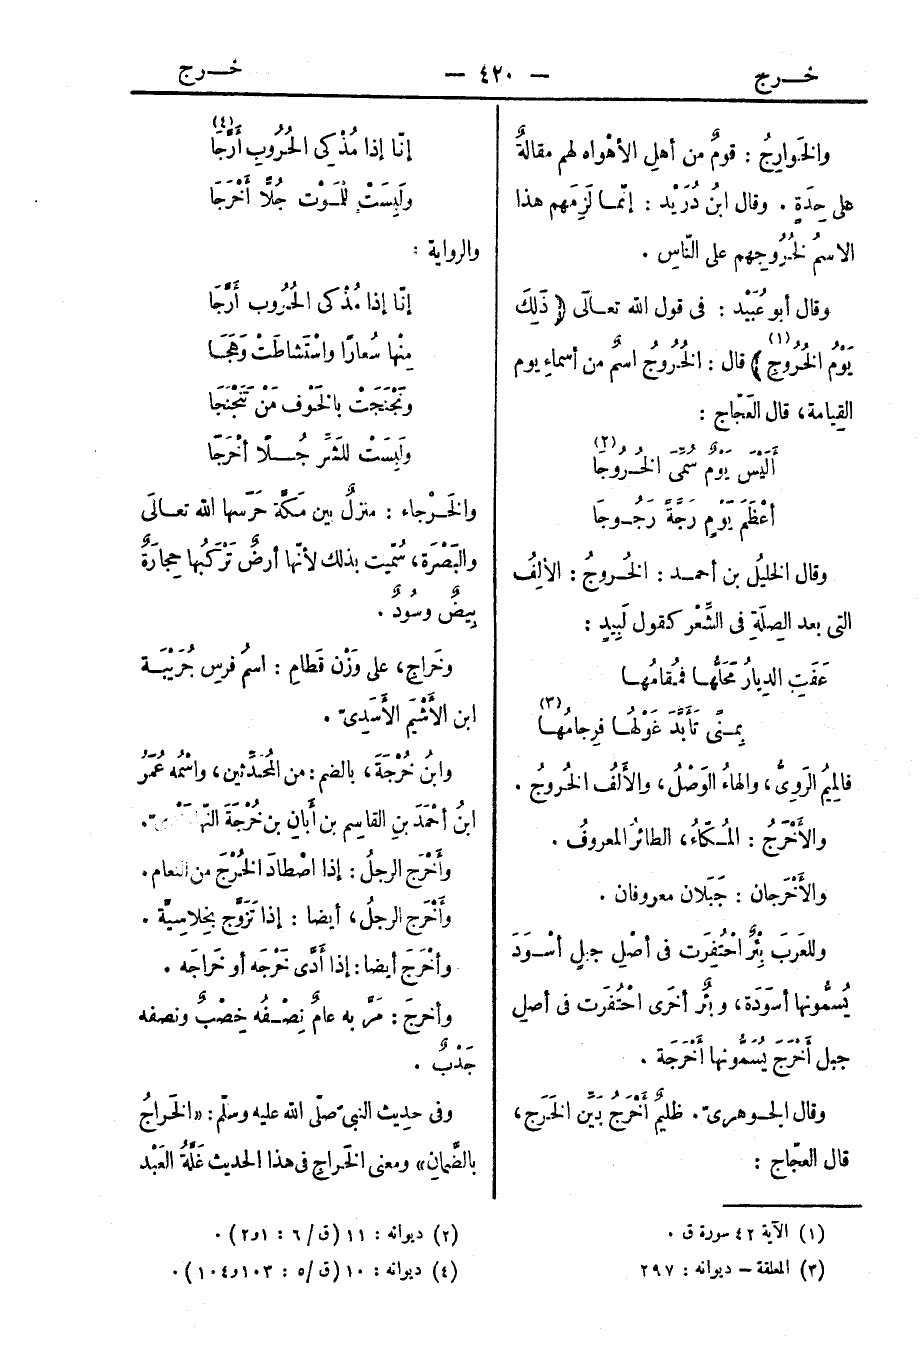 خرج
— ٤٢٠ —
خرج
والخَوارِجُ : قومٌ من أهلِ الأهْواءِ لهم مقالةٌ
على حِدَةٍ . وقال ابنُ دُرَيْد : إنّما لَزِمَهم هذا
الاسمُ لخُرُوجِهم على النّاسِ .
وقال أبو عُبَيْد : فى قول الله تعالَى ﴿ ذَلِكَ
يَوْمُ الخُرُوجِ ﴾(١) قال : الخُرُوجُ اسمٌ من أسْماءِ يومِ
القِيامة، قال العَجّاج :
أَلَيْسَ يَوْمٌ سُمِّىَ الخُرُوجَا(٢)
أعْظَمَ يَوْمٍ رَجَّةً رَجُوجَا
وقال الخليلُ بن أحمد : الخُروجُ : الألِفُ
التى بعد الصِلَةِ فى الشِّعْر كقول لَبِيدٍ :
عَفَتِ الدِيارُ مَحَلُّها فمُقامُها
بِمنًى تَأَبَّدَ غَوْلُها فرِجامُها(٣)
فالمِيمُ الرَوِىُّ، والهاءُ الوَصْلُ، والأَلفُ الخُروجُ .
والأَخْرَجُ : المُكّاءُ، الطائرُ المعروفُ .
والأَخْرَجان : جَبَلان معروفان .
وللعَربَ بِئْرٌ احْتُفِرَت فى أصْلِ جبلٍ أسْوَدَ
يُسمُّونها أسوَدَة، وبِئْرٌ أخرَى احْتُفِرَت فى أصلِ
جبل أَخْرَجَ يُسَمُّونها أَخْرَجَة .
وقال الجوهرىّ . ظليمٌ أَخْرَجُ بَيِّن الخَرَجِ،
قال العجّاج :
إنّا إذا مُذْكِى الحُرُوبِ أَرَّجَا(٤)
ولَبِسَتْ لِلْمَوْت جُلًّا أَخْرَجَا
والرواية :
إنّا إذا مُذْكِى الحُرُوب أَرَّجَا
مِنْها سُعارًا واسْتَشاطَتْ وَهَجَا
وتَجَنْجَتْ بالخَوْفِ مَنْ تَنَجْنَجَا
ولَبِسَتْ للشَرِّ جُلًّا أخْرَجَا
والخَرْجاء : منزلٌ بين مَكّةَ حَرَسَها الله تعالَى
والبَصْرَة، سُمّيت بذلك لأنّها أرضٌ تَرْكَبُها حِجارَةٌ
بِيضٌ وسُودٌ .
وخَراجِ، على وَزْن قَطامِ : اسمُ فرسِ جُرَيْبَة
ابن الأَشْيَمِ الأَسَدِىّ .
وابنُ خُرْجَةَ، بالضم: من المُحَدِّثين، واسْمُه عُمَرُ
ابنُ أحمَدَ بنِ القاسِمِ بن أَبانِ بن خُرْجَةَ
وأَخْرَج الرجلُ : إذا اصْطادَ الخُرْجَ من النَعام.
وأَخْرَج الرجلُ، أيضا : إذا تَزَوَّج بخِلاسِيَّة .
وأخْرَجَ أيضا : إذا أدَّى خَرْجَه أو خَراجَه .
وأخرجَ : مَرَّ به عامٌ نِصْفُه خِصْبٌ ونصفه
جَدْبٌ .
وفى حديث النبىّ صلّى الله عليه وسلّم : «الخَراجُ
بالضَّمانِ» ومعنى الخَراجِ فى هذا الحديث غَلَّةُ العَبْد
(١) الآية ٤٢ سورة ق .
(٢) ديوانه : ١١ (ق/٦ : ١و٢) .
(٣) المعلقة – ديوانه : ٢٩٧
(٤) ديوانه : ١٠ (ق/٥ : ١٠٣و١٠٤) .